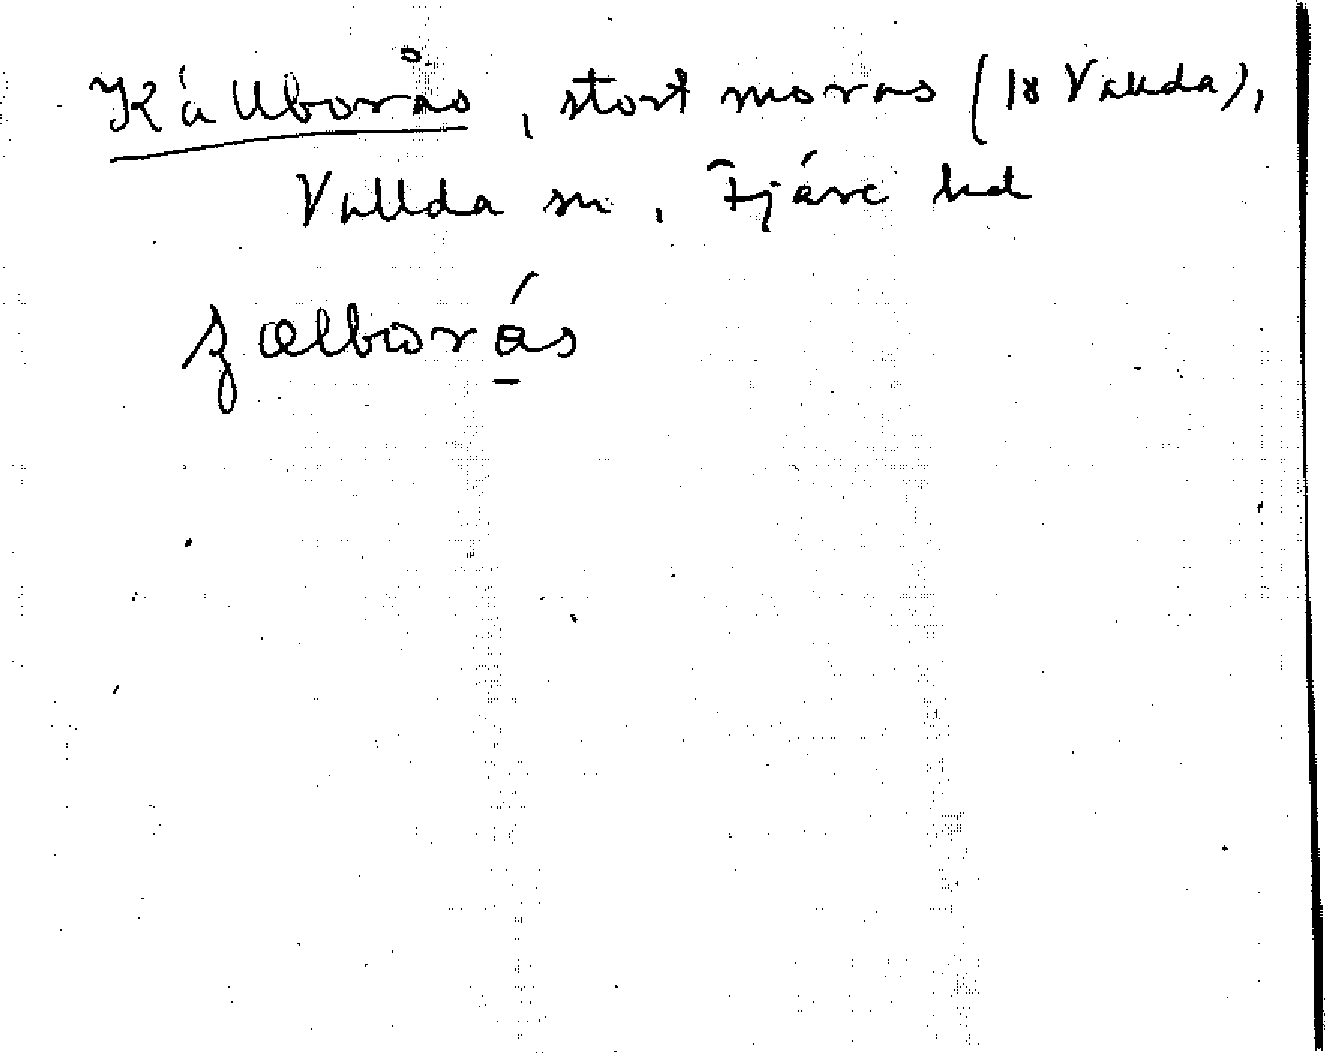 Källborås, stort moras (18 Vallda),
Vallda sn, Fjäre hd
ʒælborás